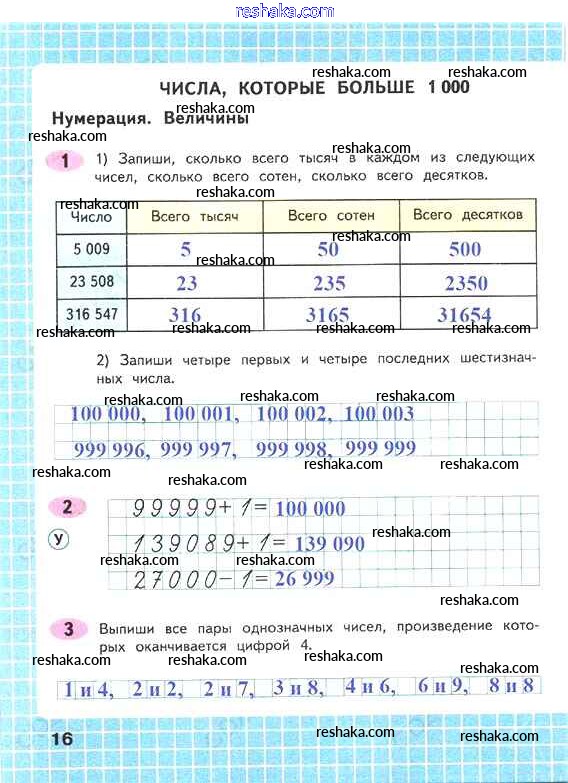 reshaka.com
reshaka.com
ЧИСЛА, КОТОРЫЕ БОЛЬШЕ 1 000
reshaka.com
reshaka.com
Нумерация. Величины
reshaka.com
reshaka.com
1 1) Запиши, сколько всего тысяч в каждом из следующих
чисел, сколько всего сотен, сколько всего десятков.
reshaka.com
Число Всего тысяч Всего сотен Всего десятков
reshaka.com
5 009 5 50 500
reshaka.com
23 508 23 235 2350
316 547 316 3165 31654
reshaka.com reshaka.com
reshaka.com
2) Запиши четыре первых и четыре последних шестизнач-
ных числа.
reshaka.com reshaka.com
100 000, 100 001, 100 002, 100 003
999 996, 999 997, 999 998, 999 999
reshaka.com reshaka.com
reshaka.com
2 99999+1= 100 000
reshaka.com
У 139089+1= 139 090
reshaka.com
27000-1= 26 999
reshaka.com
3 Выпиши все пары однозначных чисел, произведение кото-
рых оканчивается цифрой 4.
reshaka.com reshaka.com
reshaka.com
1 и 4, 2 и 2, 2 и 7, 3 и 8, 4 и 6, 6 и 9, 8 и 8
16
reshaka.com
reshaka.com
reshaka.com